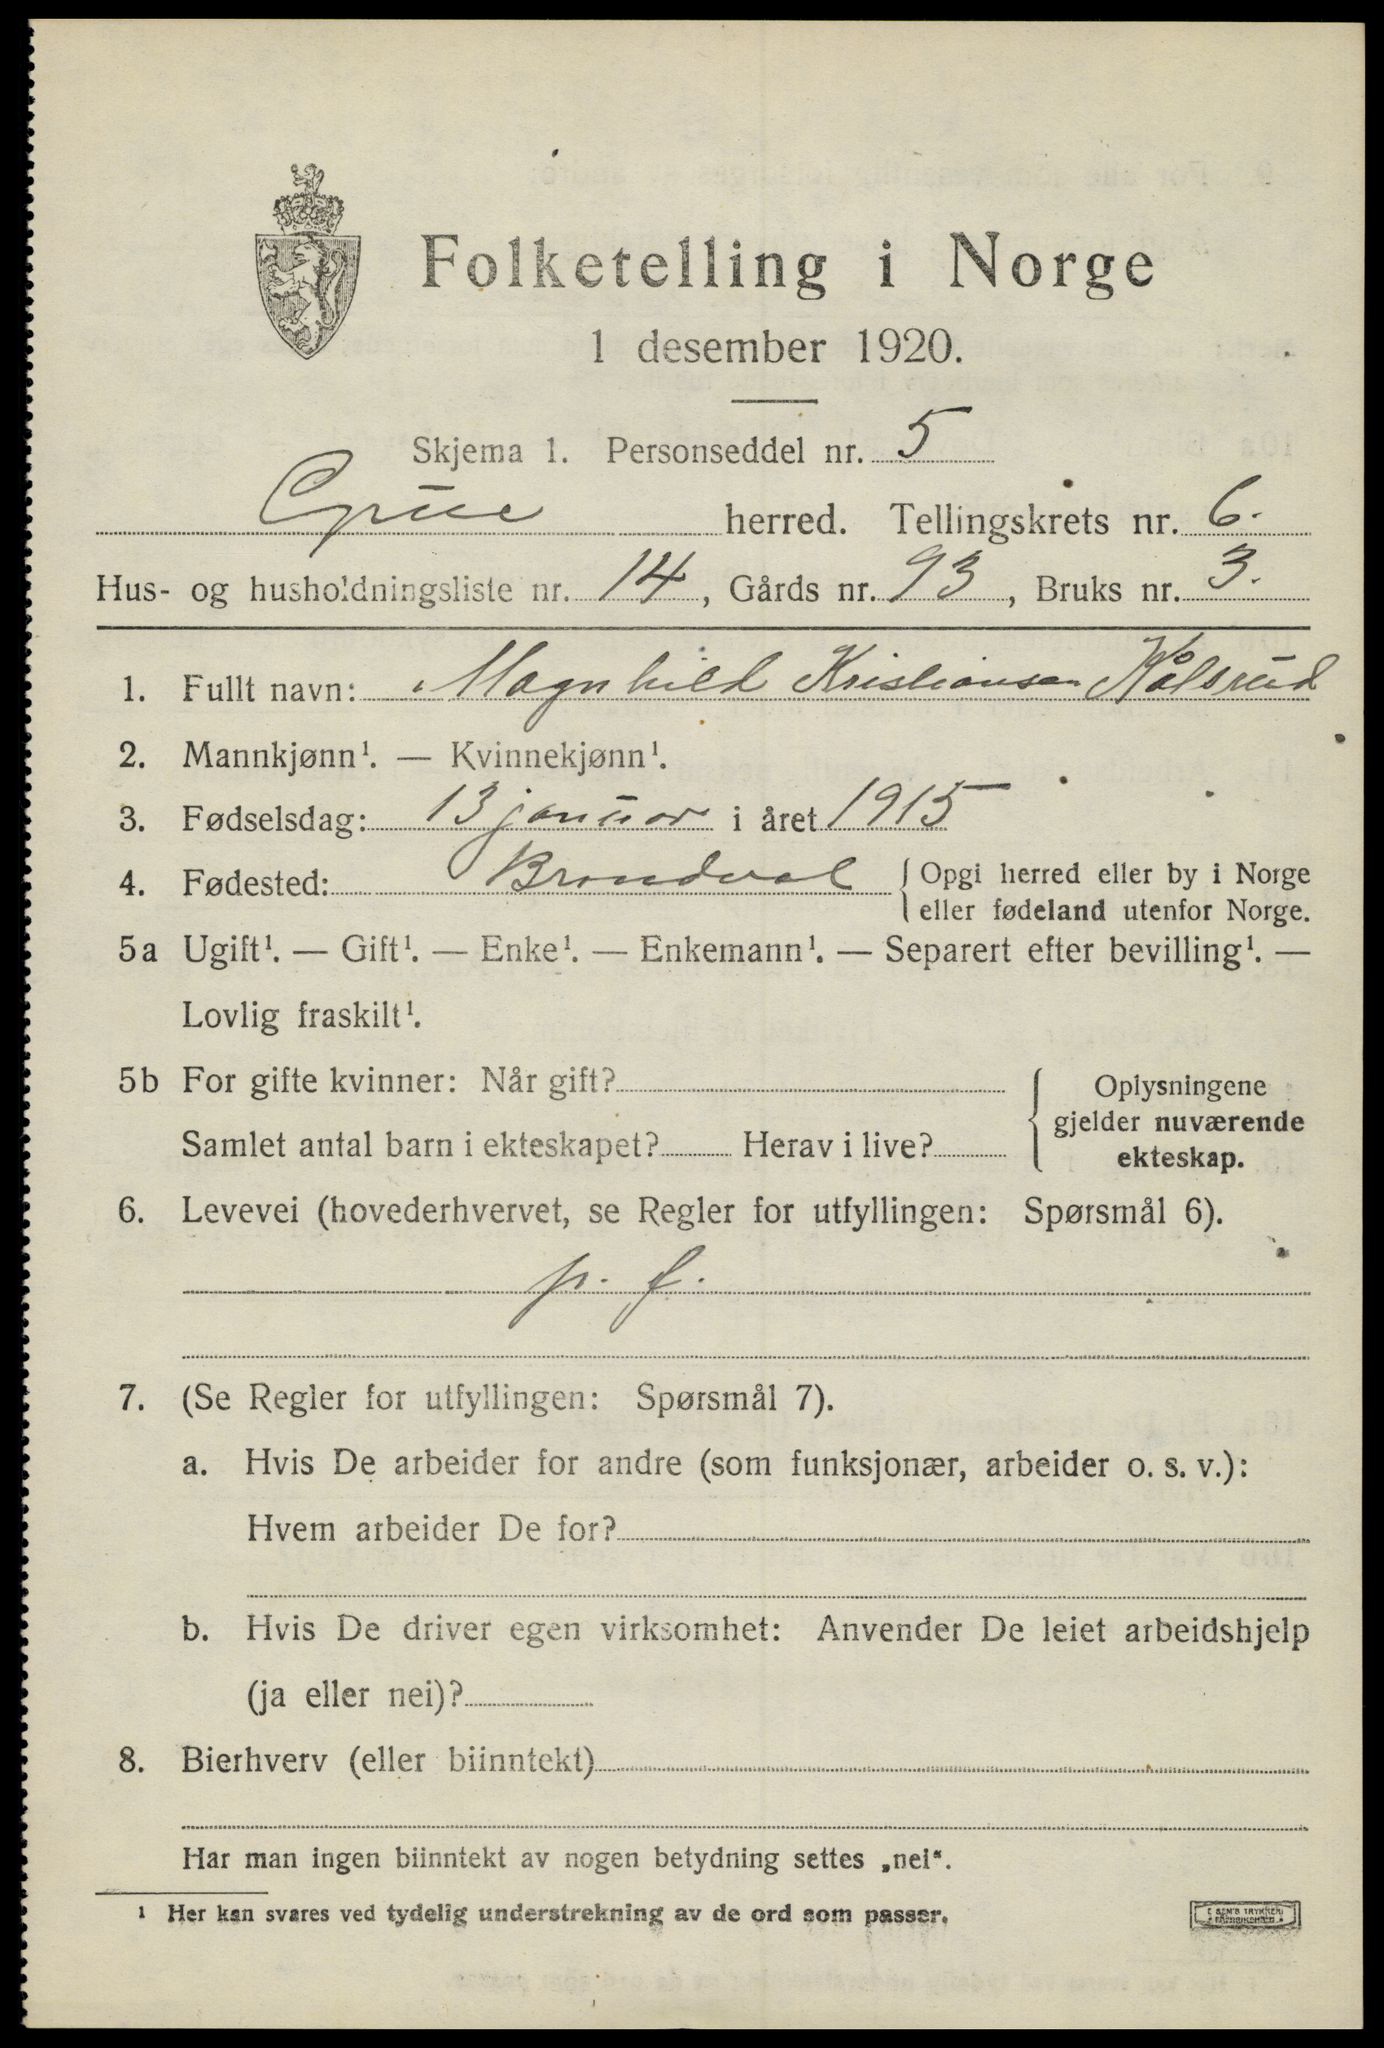 Folketelling i Norge
1 desember 1920.
Skjema 1. Personseddel nr. 5
Grue herred. Tellingskrets nr. 6.
Hus- og husholdningsliste nr. 14, Gårds nr. 93, Bruks nr. 3.
1. Fullt navn: Magnhild Kristiansen Kålsrud
2. Mannkjønn¹. — Kvinnekjønn¹.
3. Fødselsdag: 13 januar i året 1915
4. Fødested: Brandval { Opgi herred eller by i Norge
eller fødeland utenfor Norge.
5a Ugift¹. — Gift¹. — Enke¹. — Enkemann¹. — Separert efter bevilling¹. —
Lovlig fraskilt¹.
5b For gifte kvinner: Når gift?
Samlet antal barn i ekteskapet? Herav i live?
{ Oplysningene
gjelder nuværende
ekteskap.
6. Levevei (hovederhvervet, se Regler for utfyllingen: Spørsmål 6).
p. f.
7. (Se Regler for utfyllingen: Spørsmål 7).
a. Hvis De arbeider for andre (som funksjonær, arbeider o. s. v.):
Hvem arbeider De for?
b. Hvis De driver egen virksomhet: Anvender De leiet arbeidshjelp
(ja eller nei)?
8. Bierhverv (eller biinntekt)
Har man ingen biinntekt av nogen betydning settes „nei“.
¹ Her kan svares ved tydelig understrekning av de ord som passer.